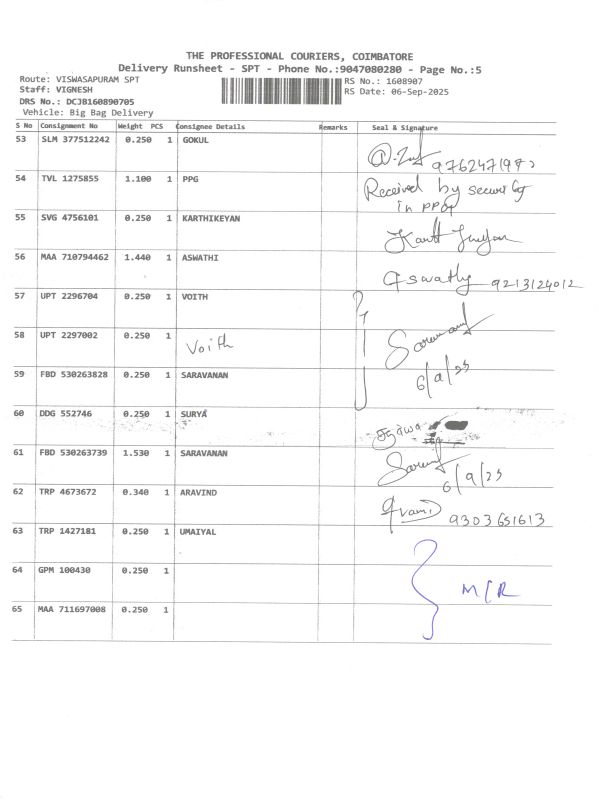 THE PROFESSIONAL COURIERS, COIMBATORE
Delivery Runsheet - SPT - Phone No.:9047080280 - Page No.:5
Route: VISWASAPURAM SPT
RS No.: 1608907
Staff: VIGNESH
RS Date: 06-Sep-2025
DRS No.: DCJB160890705
Vehicle: Big Bag Delivery
S No Consignment No Weight PCS Consignee Details Remarks Seal & Signature
53 SLM 377512242 0.250 1 GOKUL
54 TVL 1275855 1.100 1 PPG Received by security
in
55 SVG 4756101 0.250 1 KARTHIKEYAN
56 MAA 710794462 1.440 1 ASWATHI Aswathy 9213124012
57 UPT 2296704 0.250 1 VOITH
58 UPT 2297002 0.250 1 Voith
59 FBD 530263828 0.250 1 SARAVANAN
60 DDG 552746 0.250 1 SURYA
61 FBD 530263739 1.530 1 SARAVANAN 6/9/25
62 TRP 4673672 0.340 1 ARAVIND 9303651613
63 TRP 1427181 0.250 1 UMAIYAL
64 GPM 100430 0.250 1
65 MAA 711697008 0.250 1